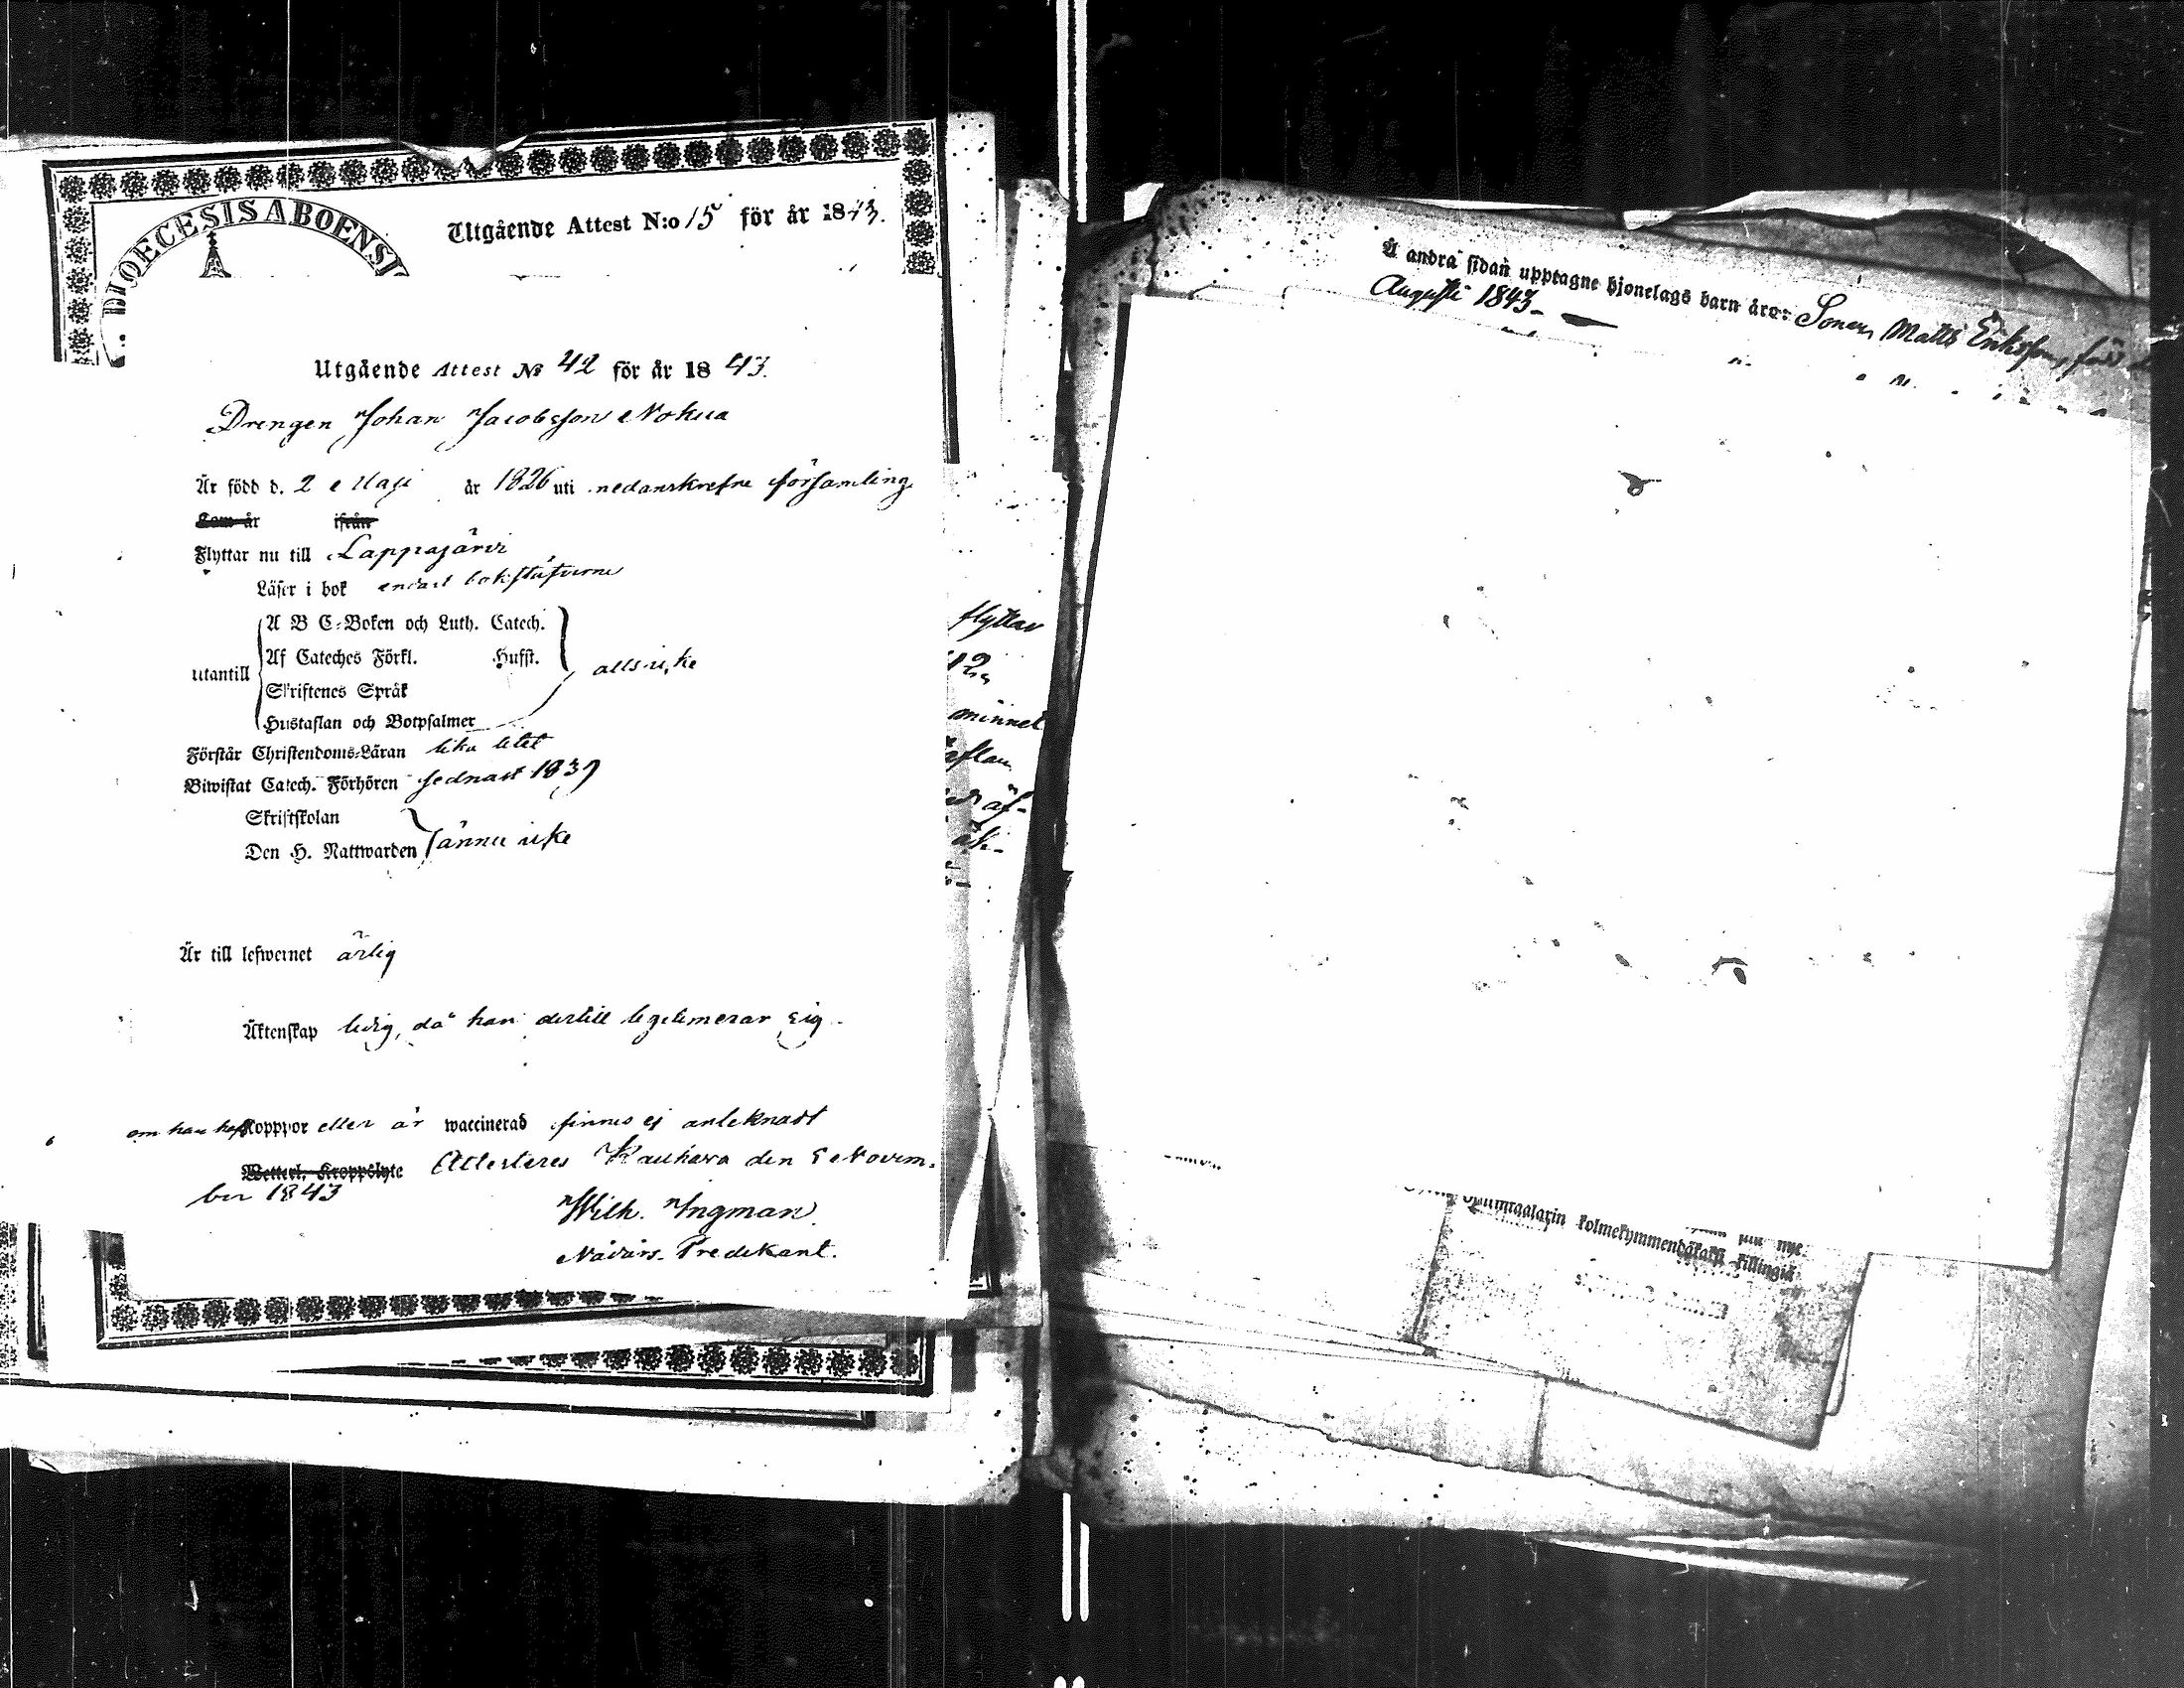 DIOECESIS ABOENSI
Utgående Attest N:o 15 för år 1843.
Utgående Attest № 42 för år 1843.
Drengen Johan Jacobsson Nokua
Är född d. 2 Maji år 1826 uti nedanskrefne församling
Kom år ifrån
Flyttar nu till Lappajärvi
Läser i bok endast bokstäfverne
A B C-Boken och Luth. Catech.
Af Cateches Förkl. Hufst.
utantill alls icke
Skriftenes Språk
Hustaflan och Botpsalmer
Förstår Christendoms-Läran lika litet
Biwistat Catech. Förhören sednast 1839
Skriftskolan
Den H. Nattwarden ännu icke
Är till lefwernet ärlig
Äktenskap ledig, då han dertill legitimerar sig.
om han haft Koppor eller är waccinerad finnes ej anteknadt
Wetterl. Kroppslyte Attesteres Kauhava den 5 Novem-
ber 1843
Wilh. Ingman
Nådårs-Predikant.
flyttar
minnet
Å andra sidan upptagne hjonelags barn äro: Sonen Matts Eriksson, född
Augusti 1843.
kolmekymmendäkaksi killingiä